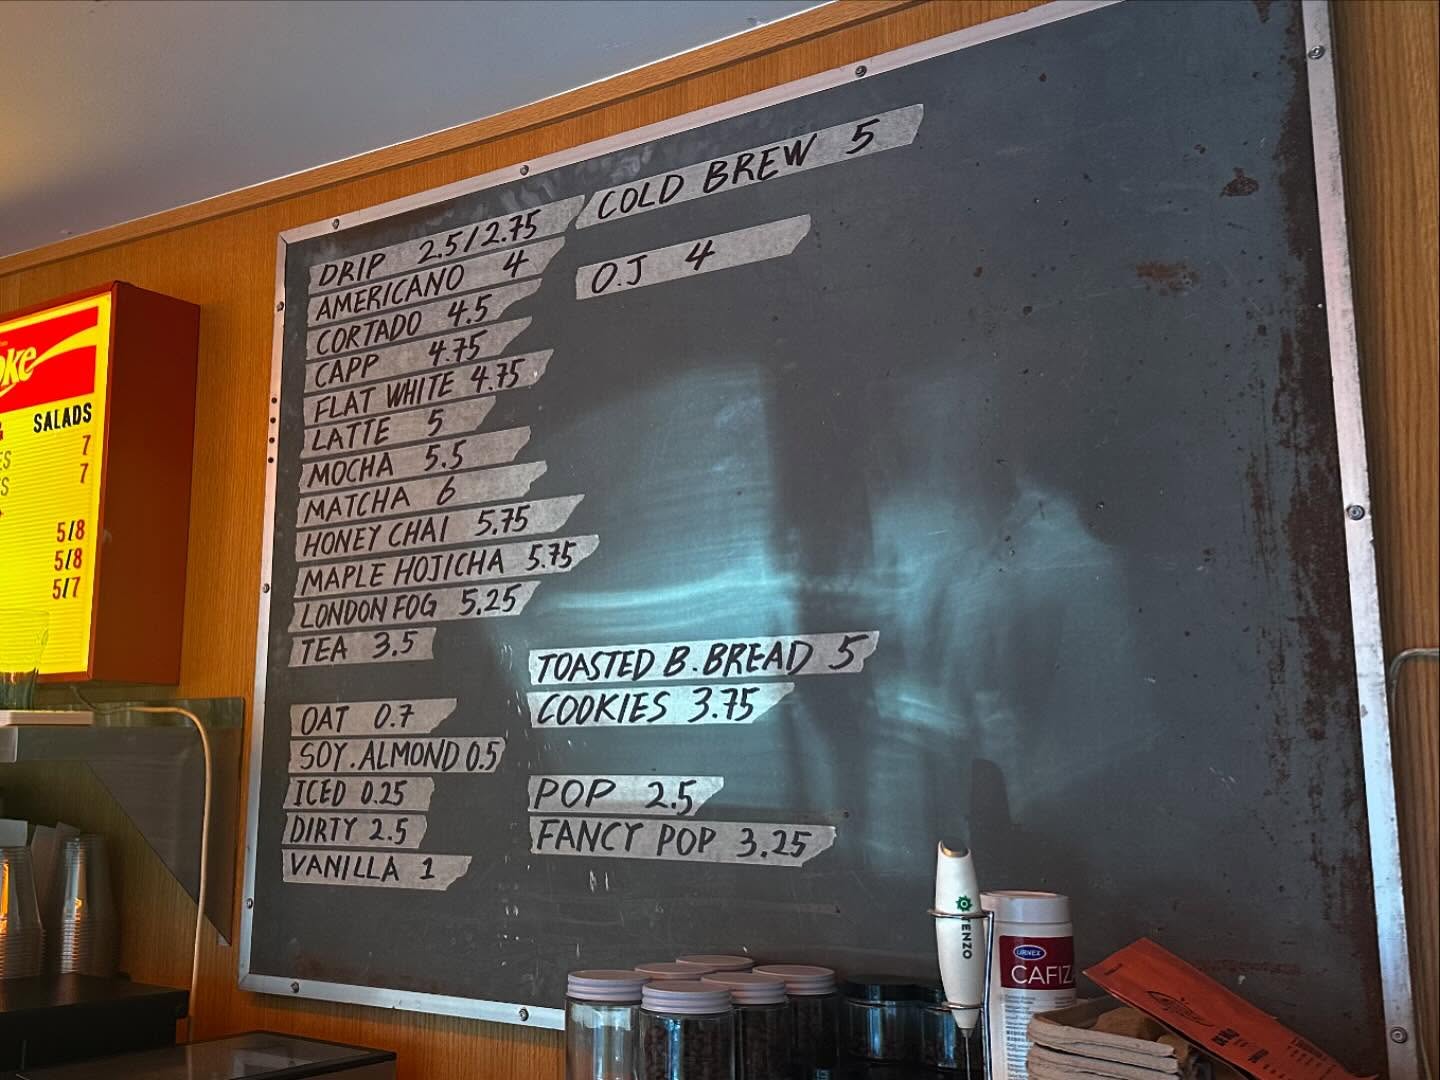 DRIP 2.5/2.75
AMERICANO 4
CORTADO 4.5
CAPP 4.75
FLAT WHITE 4.75
LATTE 5
MOCHA 5.5
MATCHA 6
HONEY CHAI 5.75
MAPLE HOJICHA 5.75
LONDON FOG 5.25
TEA 3.5
OAT 0.7
SOY.ALMOND 0.5
ICED 0.25
DIRTY 2.5
VANILLA 1
COLD BREW 5
O.J 4
TOASTED B.BREAD 5
COOKIES 3.75
POP 2.5
FANCY POP 3.25
SALADS
7
7
5/8
5/8
5/7
URNEX
CAFIZ